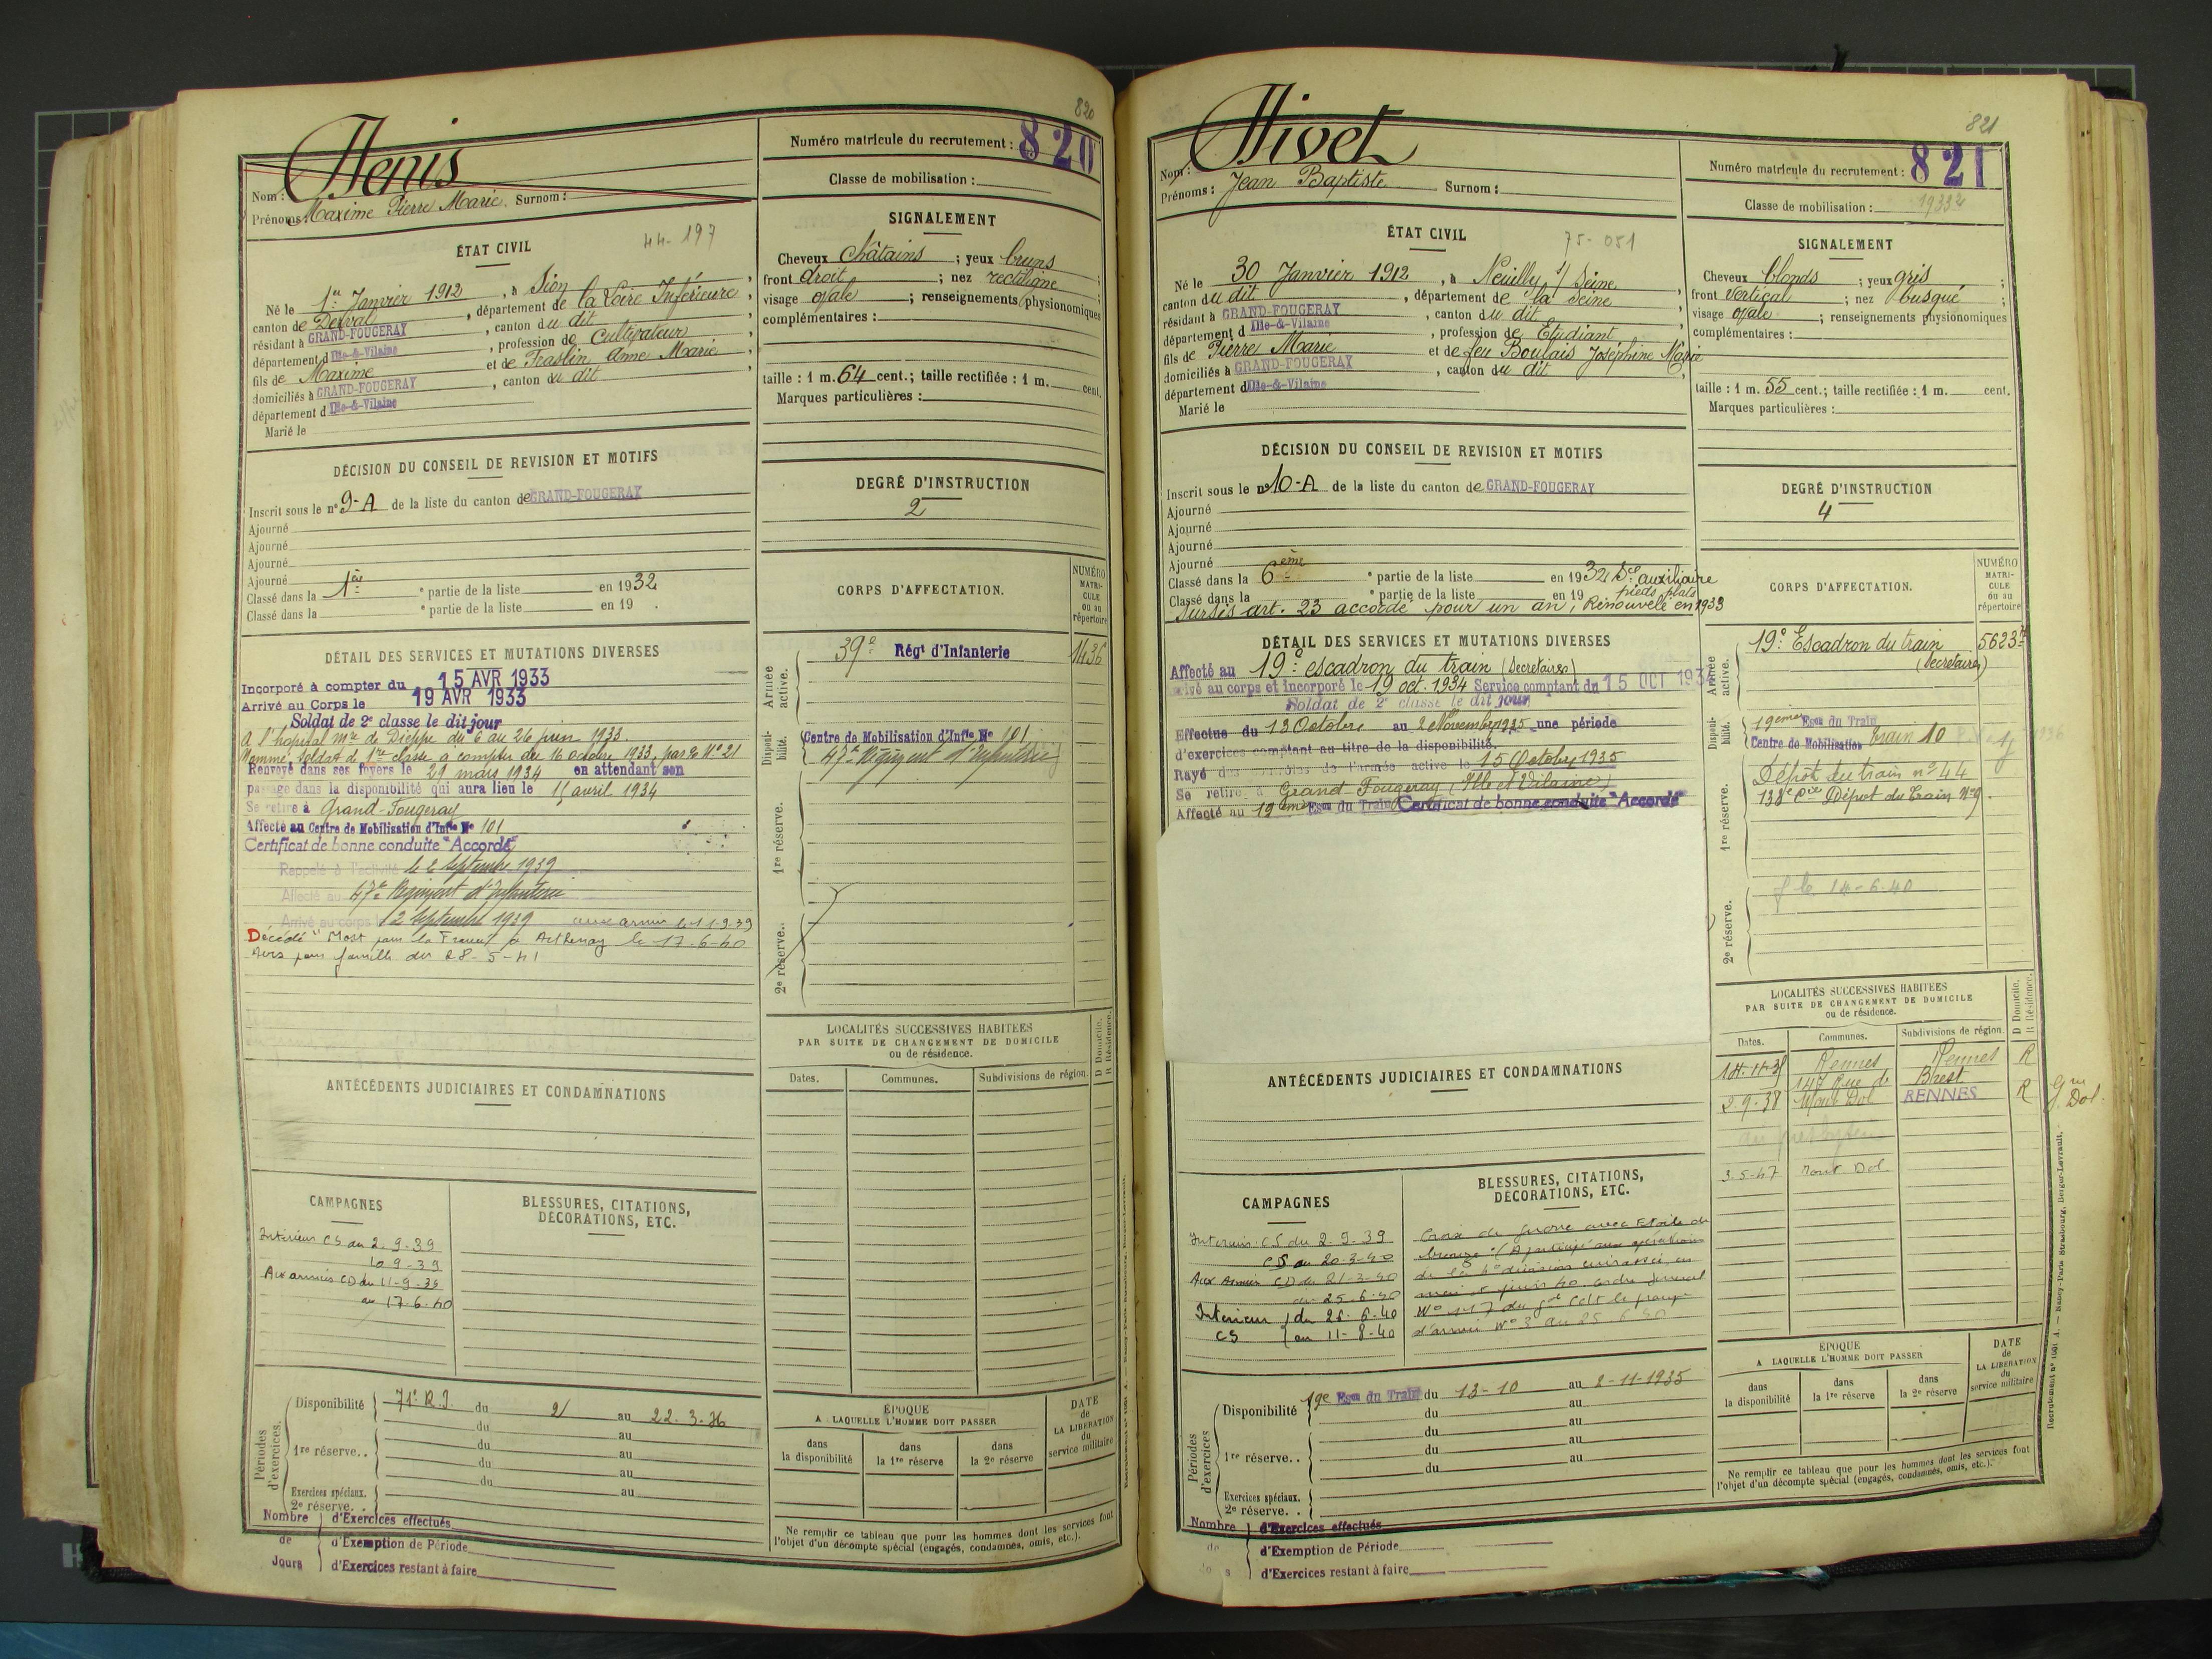 820
Nom : Henis
Prénoms : Maxime Pierre Marie. Surnom :
Numéro matricule du recrutement : 820
Classe de mobilisation :
ÉTAT CIVIL
44-197
Né le 1er Janvier 1912, à Sion
canton de Derval, département de la Loire Inférieure,
résidant à GRAND-FOUGERAY, canton du dit
département d Ille-&-Vilaine, profession de Cultivateur,
fils de Maxime et de Fraslin Anne Marie,
domiciliés à GRAND-FOUGERAY, canton du dit,
département d Ille-&-Vilaine
Marié le
SIGNALEMENT
Cheveux châtains ; yeux bruns
front droit ; nez rectiligne ;
visage ovale ; renseignements physionomiques
complémentaires :
taille : 1 m. 64 cent.; taille rectifiée : 1 m. cent.
Marques particulières :
DÉCISION DU CONSEIL DE REVISION ET MOTIFS
Inscrit sous le n° 9-A de la liste du canton de GRAND-FOUGERAY
Ajourné
Ajourné
Ajourné
Ajourné
Classé dans la 1ère ° partie de la liste en 1932
Classé dans la ° partie de la liste en 19 .
DEGRÉ D'INSTRUCTION
2
DÉTAIL DES SERVICES ET MUTATIONS DIVERSES
Incorporé à compter du 15 AVR 1933
Arrivé au Corps le 19 AVR 1933
Soldat de 2e classe le dit jour
A l'hopital mre de Dieppe du 6 au 26 juin 1933
Nommé soldat de 1re classe à compter du 16 octobre 1933, par N° 21
Renvoyé dans ses foyers le 21 mars 1934 en attendant son
passage dans la disponibilité qui aura lieu le 15 avril 1934
Se retire à Grand-Fougeray
Affecté au Centre de Mobilisation d'Infie No 101
Certificat de bonne conduite "Accordé"
Rappelé à l'activité le 2 Septembre 1939
Affecté au 47e Régiment d'Infanterie
Arrivé au corps le 2 Septembre 1939 aux armées le 11-9-39
Décédé "Mort pour la France" à Arthenay le 17-6-40
Avis pour famille du 28-5-41
CORPS D'AFFECTATION.
NUMÉRO MATRICULE ou au répertoire
Armée active.
39e Régt d'Infanterie 1436
Disponibilité.
Centre de Mobilisation d'Infie No 101
47e Régiment d'Infanterie
1re réserve.
2e réserve.
LOCALITÉS SUCCESSIVES HABITÉES
PAR SUITE DE CHANGEMENT DE DOMICILE
ou de résidence.
Dates. Communes. Subdivisions de région. D Domicile. R Résidence.
ANTÉCÉDENTS JUDICIAIRES ET CONDAMNATIONS
CAMPAGNES
Intérieur CS du 2-9-39
10-9-39
Aux armées CD du 11-9-39
au 17-6-40
BLESSURES, CITATIONS,
DÉCORATIONS, ETC.
Périodes d'exercices.
Disponibilité 71e R.I. du 2 au 22-3-36
du au
1re réserve.. du au
du au
du au
Exercices spéciaux.
2e réserve. .
Nombre de Jours
d'Exercices effectués
d'Exemption de Période
d'Exercices restant à faire
ÉPOQUE
A LAQUELLE L'HOMME DOIT PASSER
dans la disponibilité
dans la 1re réserve
dans la 2e réserve
DATE de LA LIBÉRATION du service militaire
Ne remplir ce tableau que pour les hommes dont les services font
l'objet d'un décompte spécial (engagés, condamnés, omis, etc.).
821
Nom : Hivet
Prénoms : Jean Baptiste Surnom :
Numéro matricule du recrutement : 821
Classe de mobilisation :
ÉTAT CIVIL
75-051
Né le 30 Janvier 1912, à Neuilly s/ Seine
canton du dit, département de la Seine,
résidant à GRAND-FOUGERAY, canton du dit,
département d Ille-&-Vilaine, profession de Etudiant
fils de Pierre Marie et de feu Boulais Joséphine Marie
domiciliés à GRAND-FOUGERAY, canton du dit,
département d Ille-&-Vilaine
Marié le
SIGNALEMENT
Cheveux blonds ; yeux gris
front vertical ; nez busqué ;
visage ovale ; renseignements physionomiques
complémentaires :
taille : 1 m. 55 cent.; taille rectifiée : 1 m. cent.
Marques particulières :
DÉCISION DU CONSEIL DE REVISION ET MOTIFS
Inscrit sous le n° 10-A de la liste du canton de GRAND-FOUGERAY
Ajourné
Ajourné
Ajourné
Ajourné
Classé dans la 6ème ° partie de la liste en 1932 Sce auxiliaire
Classé dans la ° partie de la liste en 19 pieds plats
Sursis art. 23 accordé pour un an, Renouvelé en 1933
DEGRÉ D'INSTRUCTION
4
DÉTAIL DES SERVICES ET MUTATIONS DIVERSES
Affecté au 19e escadron du train (Secrétaires)
Arrivé au corps et incorporé le 19 oct. 1934 Service comptant du 15 OCT 1934
Soldat de 2e classe le dit jour
Effectue du 13 Octobre au 2 Novembre 1935 une période
d'exercices comptant au titre de la disponibilité.
Rayé des contrôles de l'armée active le 15 Octobre 1935
Se retire à Grand Fougeray (Ille et Vilaine)
Affecté au 19ème Eson du Train Certificat de bonne conduite "Accordé"
CORPS D'AFFECTATION.
NUMÉRO MATRICULE ou au répertoire
Armée active.
19e Escadron du train 5623
(Secrétaires)
Disponibilité.
19ème Eson du Train
Centre de Mobilisation train 10
1re réserve.
Dépôt du train n° 44
138e Cie Dépôt du Train N° 9
2e réserve.
le 14-6-40
LOCALITÉS SUCCESSIVES HABITÉES
PAR SUITE DE CHANGEMENT DE DOMICILE
ou de résidence.
Dates. Communes. Subdivisions de région. D Domicile. R Résidence.
Rennes Rennes R
147 Rue de Brest
2-9-38 Mont Dol RENNES R Gie Dol.
au presbytère
3-5-47 Mont Dol
ANTÉCÉDENTS JUDICIAIRES ET CONDAMNATIONS
CAMPAGNES
Intérieur : CS du 2-9-39
CS au 20-3-40
Aux Armées CD du 21-3-40
au 25-6-40
Intérieur du 26-6-40
CS au 11-8-40
BLESSURES, CITATIONS,
DÉCORATIONS, ETC.
Croix de guerre avec Etoile de
bronze : (A participé aux opérations
de la 4e division cuirassée, en
mai et juin 40. ordre général
N° 117 du gal Cdt le groupe
d'armée N° 3 du 25-6-40
Périodes d'exercices
Disponibilité 19e Eson du Train du 13-10 au 2-11-1935
du au
du au
1re réserve.. du au
du au
Exercices spéciaux.
2e réserve. .
Nombre
d'Exercices effectués
d'Exemption de Période
d'Exercices restant à faire
ÉPOQUE
A LAQUELLE L'HOMME DOIT PASSER
dans la disponibilité
dans la 1re réserve
dans la 2e réserve
DATE de LA LIBÉRATION du service militaire
Ne remplir ce tableau que pour les hommes dont les services font
l'objet d'un décompte spécial (engagés, condamnés, omis, etc.).
Recrutement n° 1601 A. — Nancy-Paris-Strasbourg, Berger-Levrault.